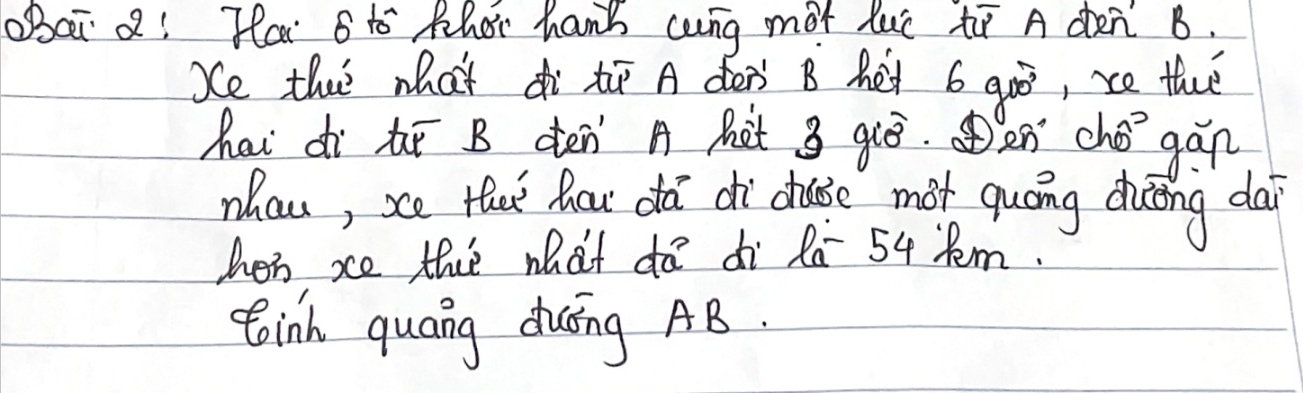 Bài 2: Hai ô tô khởi hành cùng một lúc từ A đến B.
Xe thứ nhất đi từ A đến B hết 6 giờ, xe thứ
hai đi từ B đến A hết 3 giờ. Đến chỗ gặp
nhau, xe thứ hai đã đi được một quảng đường dài
hơn xe thứ nhất đã đi là 54 km.
Tính quảng đường AB.